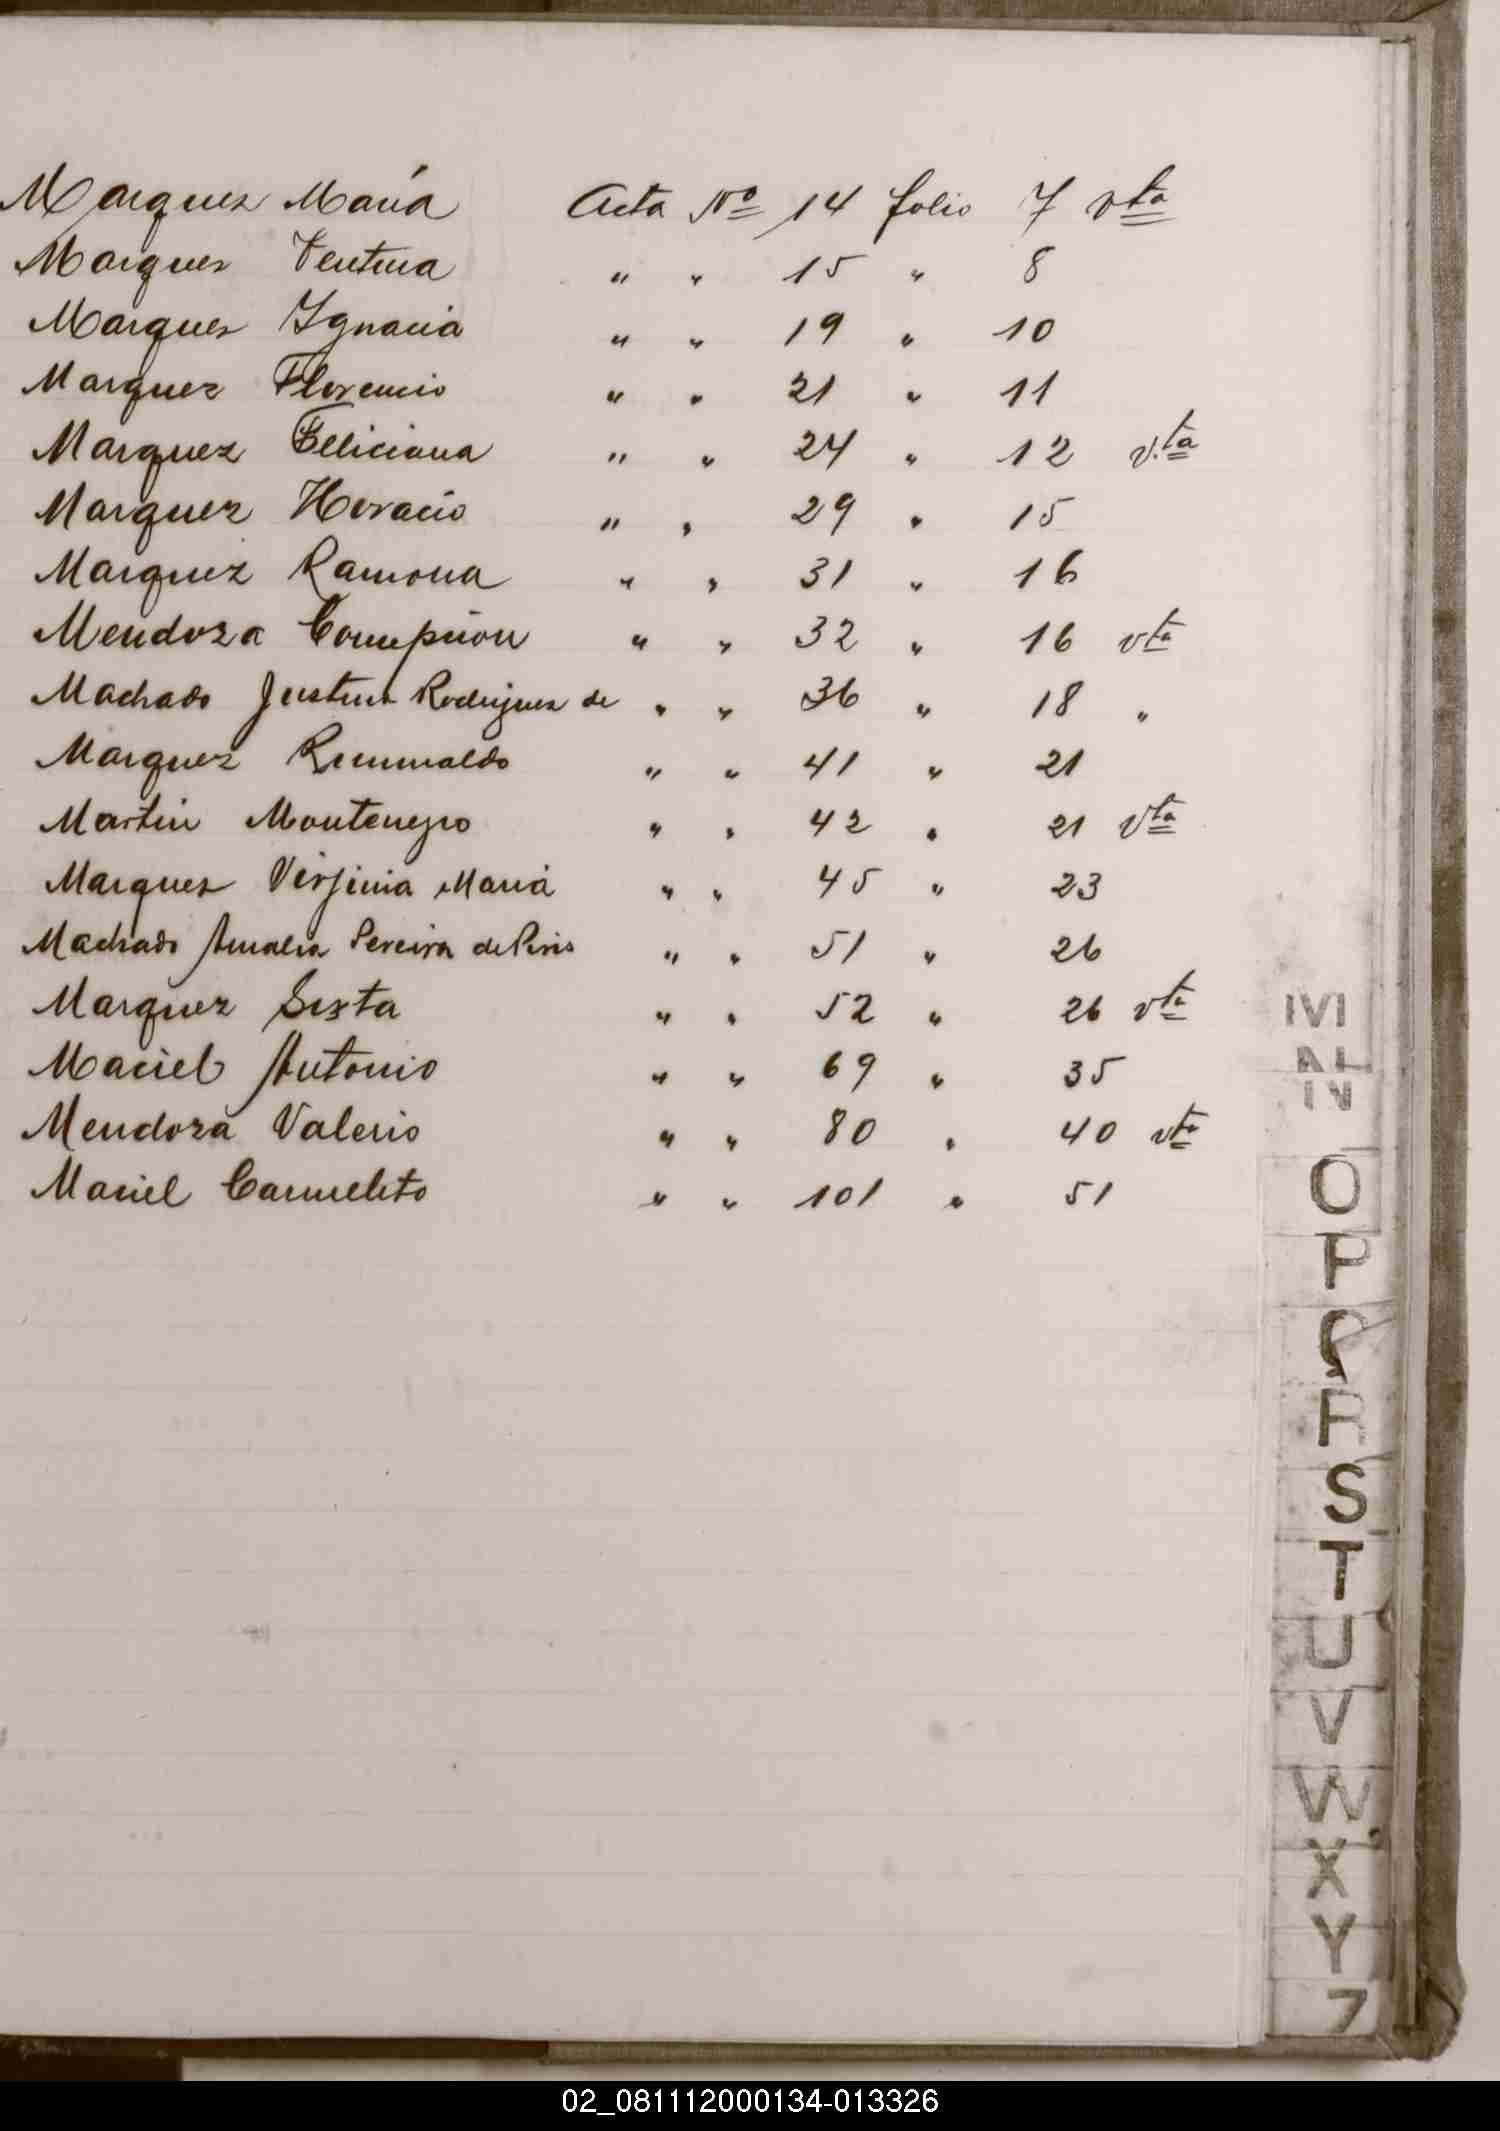 Marquez María Acta Nº 14 folio 7 vta
Marques Ventura " " 15 " 8
Marques Ygnacia " " 19 " 10
Marquez Florencio " " 21 " 11
Marquez Feliciana " " 24 " 12 vta
Marquez Horacio " " 29 " 15
Marquez Ramona " " 31 " 16
Mendoza Concepcion " " 32 " 16 vta
Machado Justina Rodriguez de " " 36 " 18 "
Marquez Rumualdo " " 41 " 21
Martin Montenegro " " 42 " 21 Vta
Marques Virjinia Maria " " 45 " 23
Machado Amalia Pereira de " " 51 " 26
Marquez Sixta " " 52 " 26 vta
Maciel Antonio " " 69 " 35
Mendoza Valerio " " 80 " 40 vta
Maciel Carmelito " " 101 " 51
M
N
O
P
Q
R
S
T
U
V
W
X
Y
Z
02_081112000134-013326